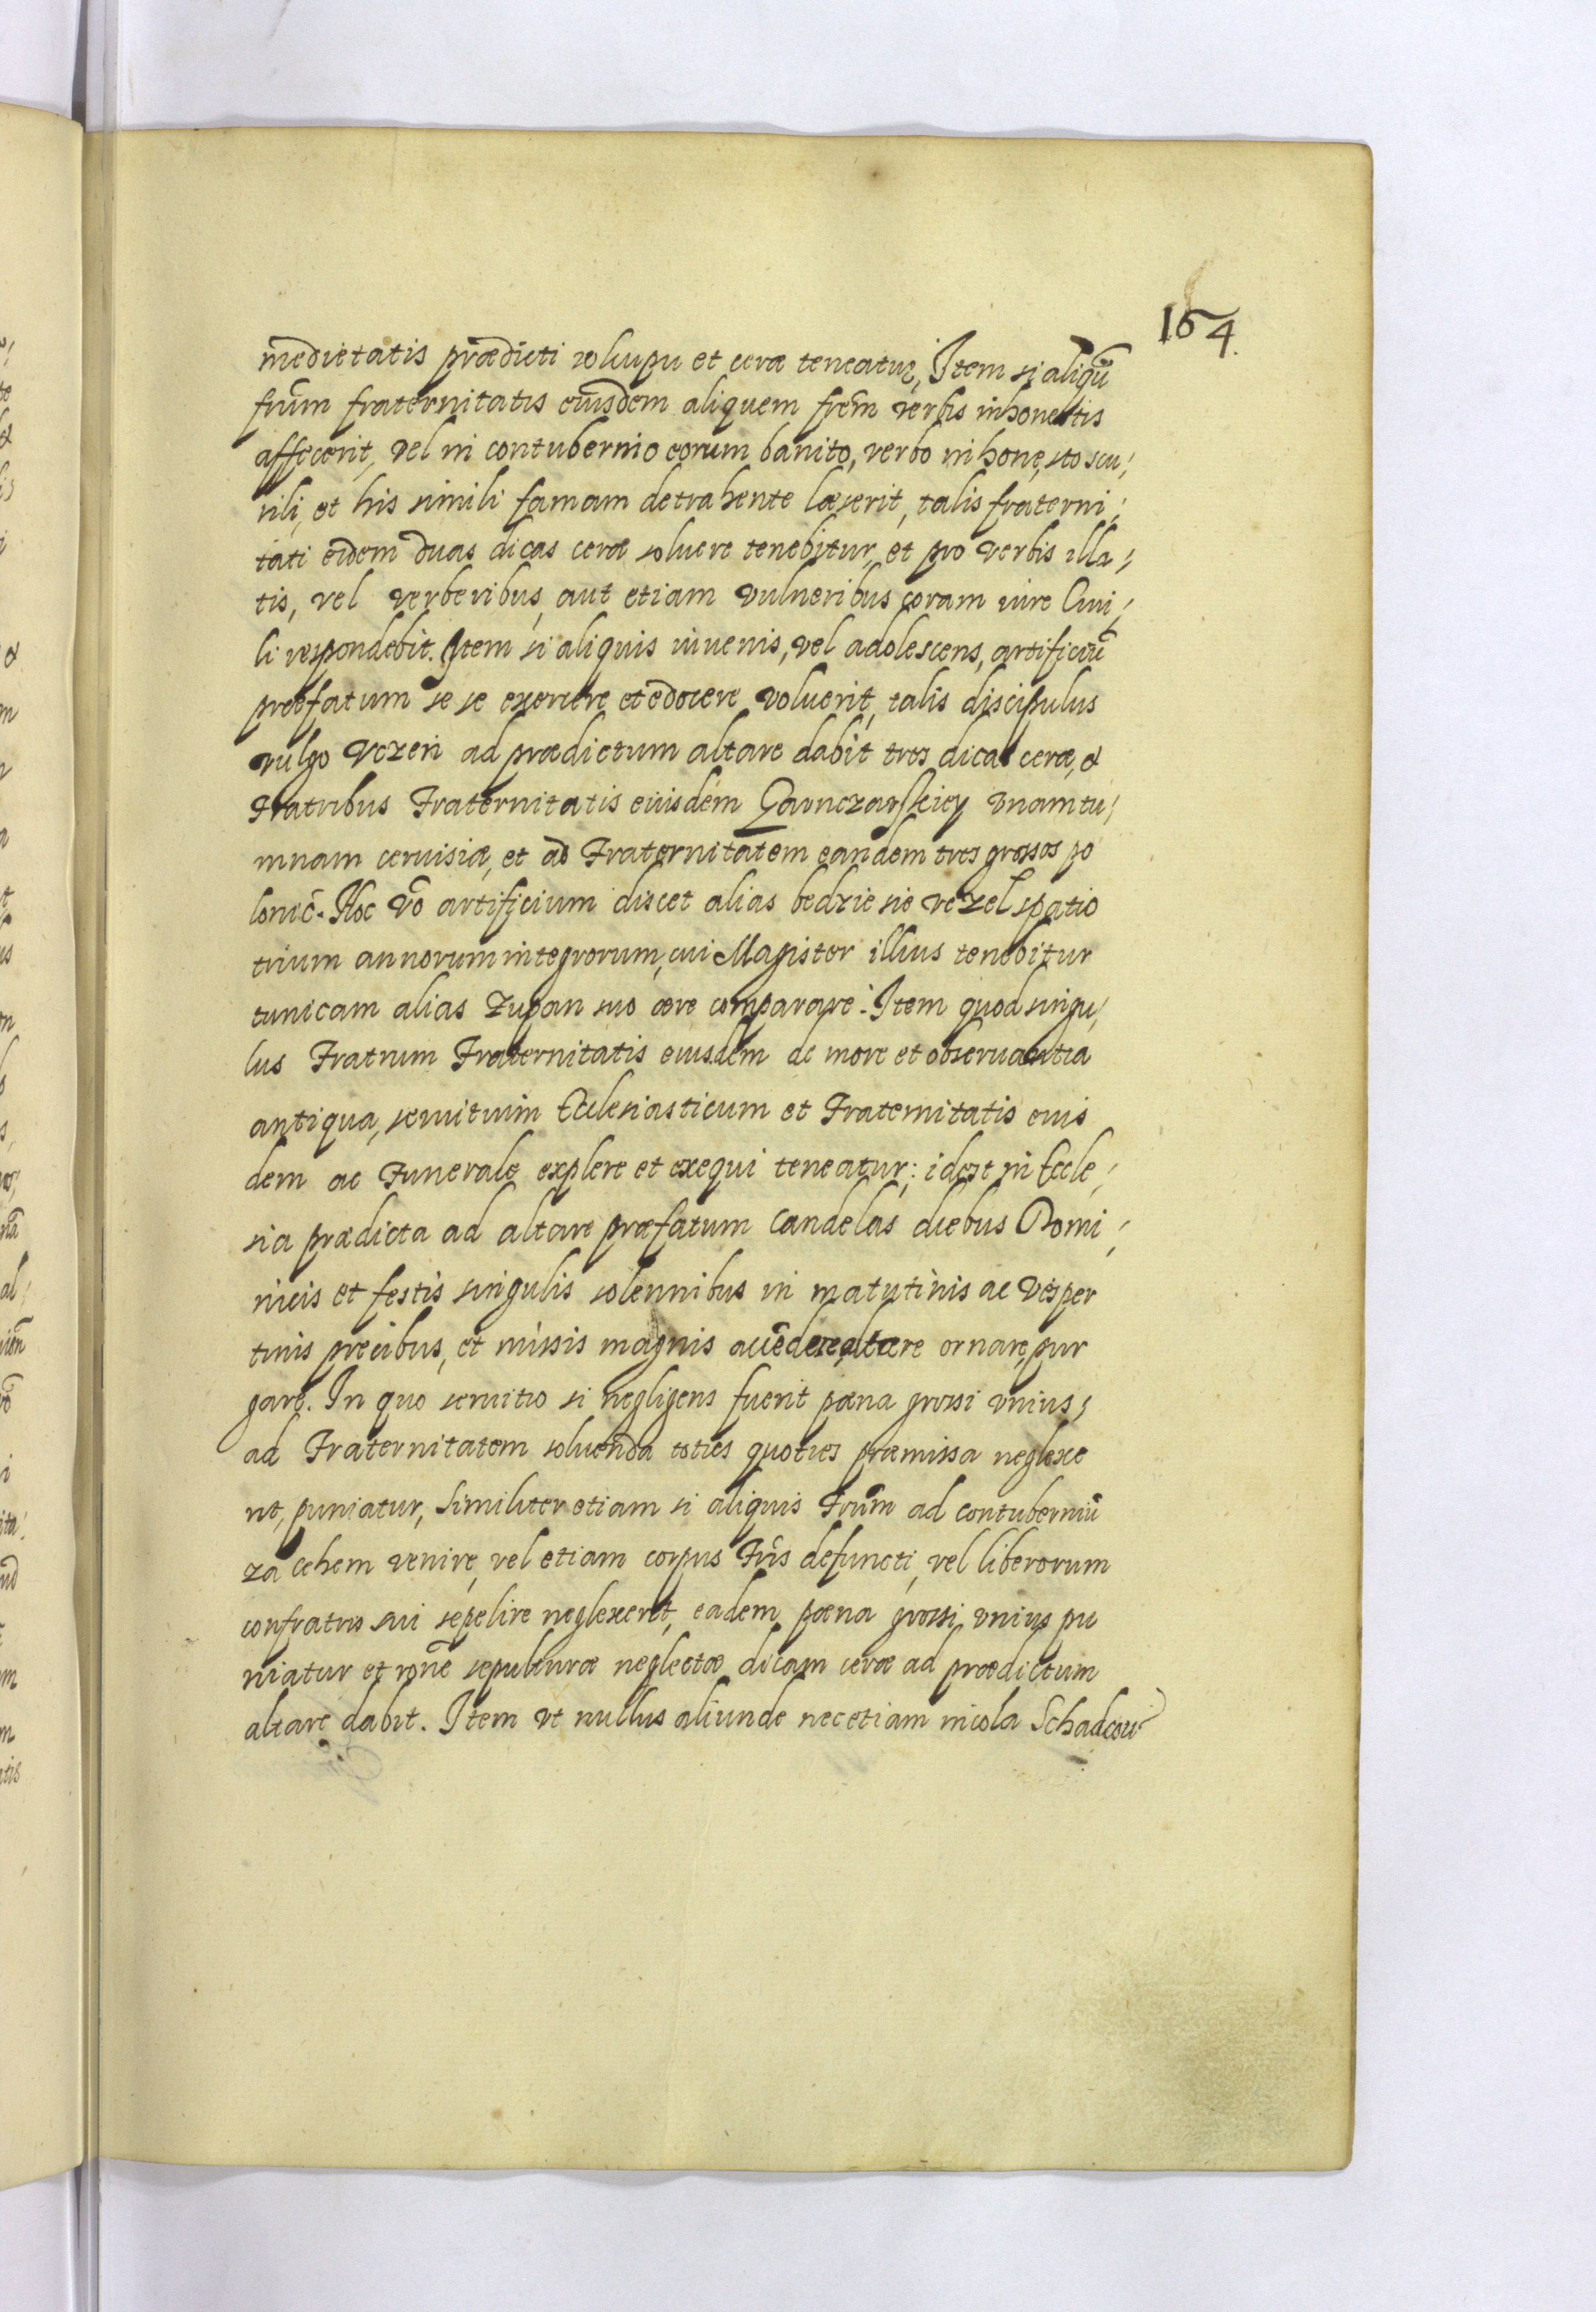 164.
medietatis prædicti wkupu et ceræ teneatur, Item si aliqu̅
fru̅m fraternitatis eiusdem aliquem fre̅m verbis inhonestis
affecerit, vel in contubernio eorum banito, verbo inhone,sto scu,
rili, et his simili famam detrahente læserit, talis fraterni,
tati eidem duas dicas ceræ soluere tenebitur, et pro verbis illa,
tis, vel verberibus, aut etiam vulneribus coram iure Ciui,
li respondebit. Item si aliquis iuuenis, vel adolescens, artificiu̅
præfatum se se exercere et edocere voluerit, talis discipulus
vulgo Vczen ad prædictum altare dabit tres dicas ceræ, &
Fratribus Fraternitatis eiusdem Garnczarskiey vnam tu,
mnam ceruisiæ, et ad Fraternitatem eandem tres grossos po
lonic̅. Hoc vo̅ artificium discet alias bedzie sie vczel spatio
trium annorum integrorum, cui Magister illius tenebitur
tunicam alias Zupan suo ære comparare. Item quod singu,
lus Fratrum Fraternitatis eiusdem de more et obseruantia
antiqua, seruitium Ecclesiasticum et Fraternitatis eius
dem ac Funerale explere et exequi teneatur; id est in Eccle,
sia prædicta ad altare præfatum Candelas diebus Domi,
nicis et festis singulis solennibus in matutinis ac vesper
tinis precibus, et missis magnis acce̅dere, altare ornare, pur
gare. In quo seruitio si negligens fuerit pæna grossi vnius,
ad Fraternitatem soluenda toties quoties præmissa neglexe
rit, puniatur, Similiter etiam si aliquis Fru̅m ad contuberniu̅
za cehem venire, vel etiam corpus Fr̅is defuncti, vel liberorum
confratris sui sepelire neglexerit, eadem pæna grossi vnius pu
niatur et ro̅ne sepulturæ neglectæ dicam ceræ ad prædictum
altare dabit. Item vt nullus aliunde nec etiam incola Schadcoui